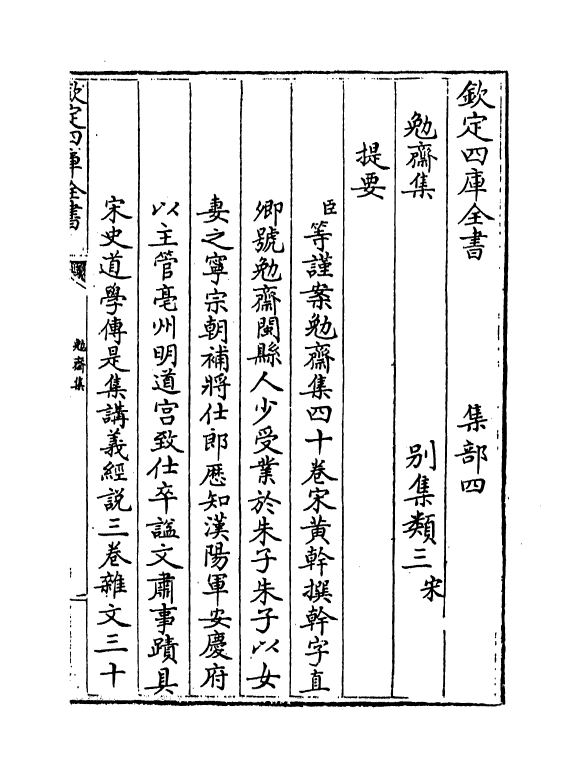 欽定四庫全書　集部四
勉齋集　別集類三宋
提要
臣等謹案勉齋集四十卷宋黄幹撰幹字直
卿號勉齋閩縣人少受業於朱子朱子以女
妻之寧宗朝補將仕郎歴知漢陽軍安慶府
以主管亳州明道宫致仕卒諡文肅事蹟具
宋史道學傳是集講義經説三卷雜文三十
欽定四庫全書
勉齋集
一